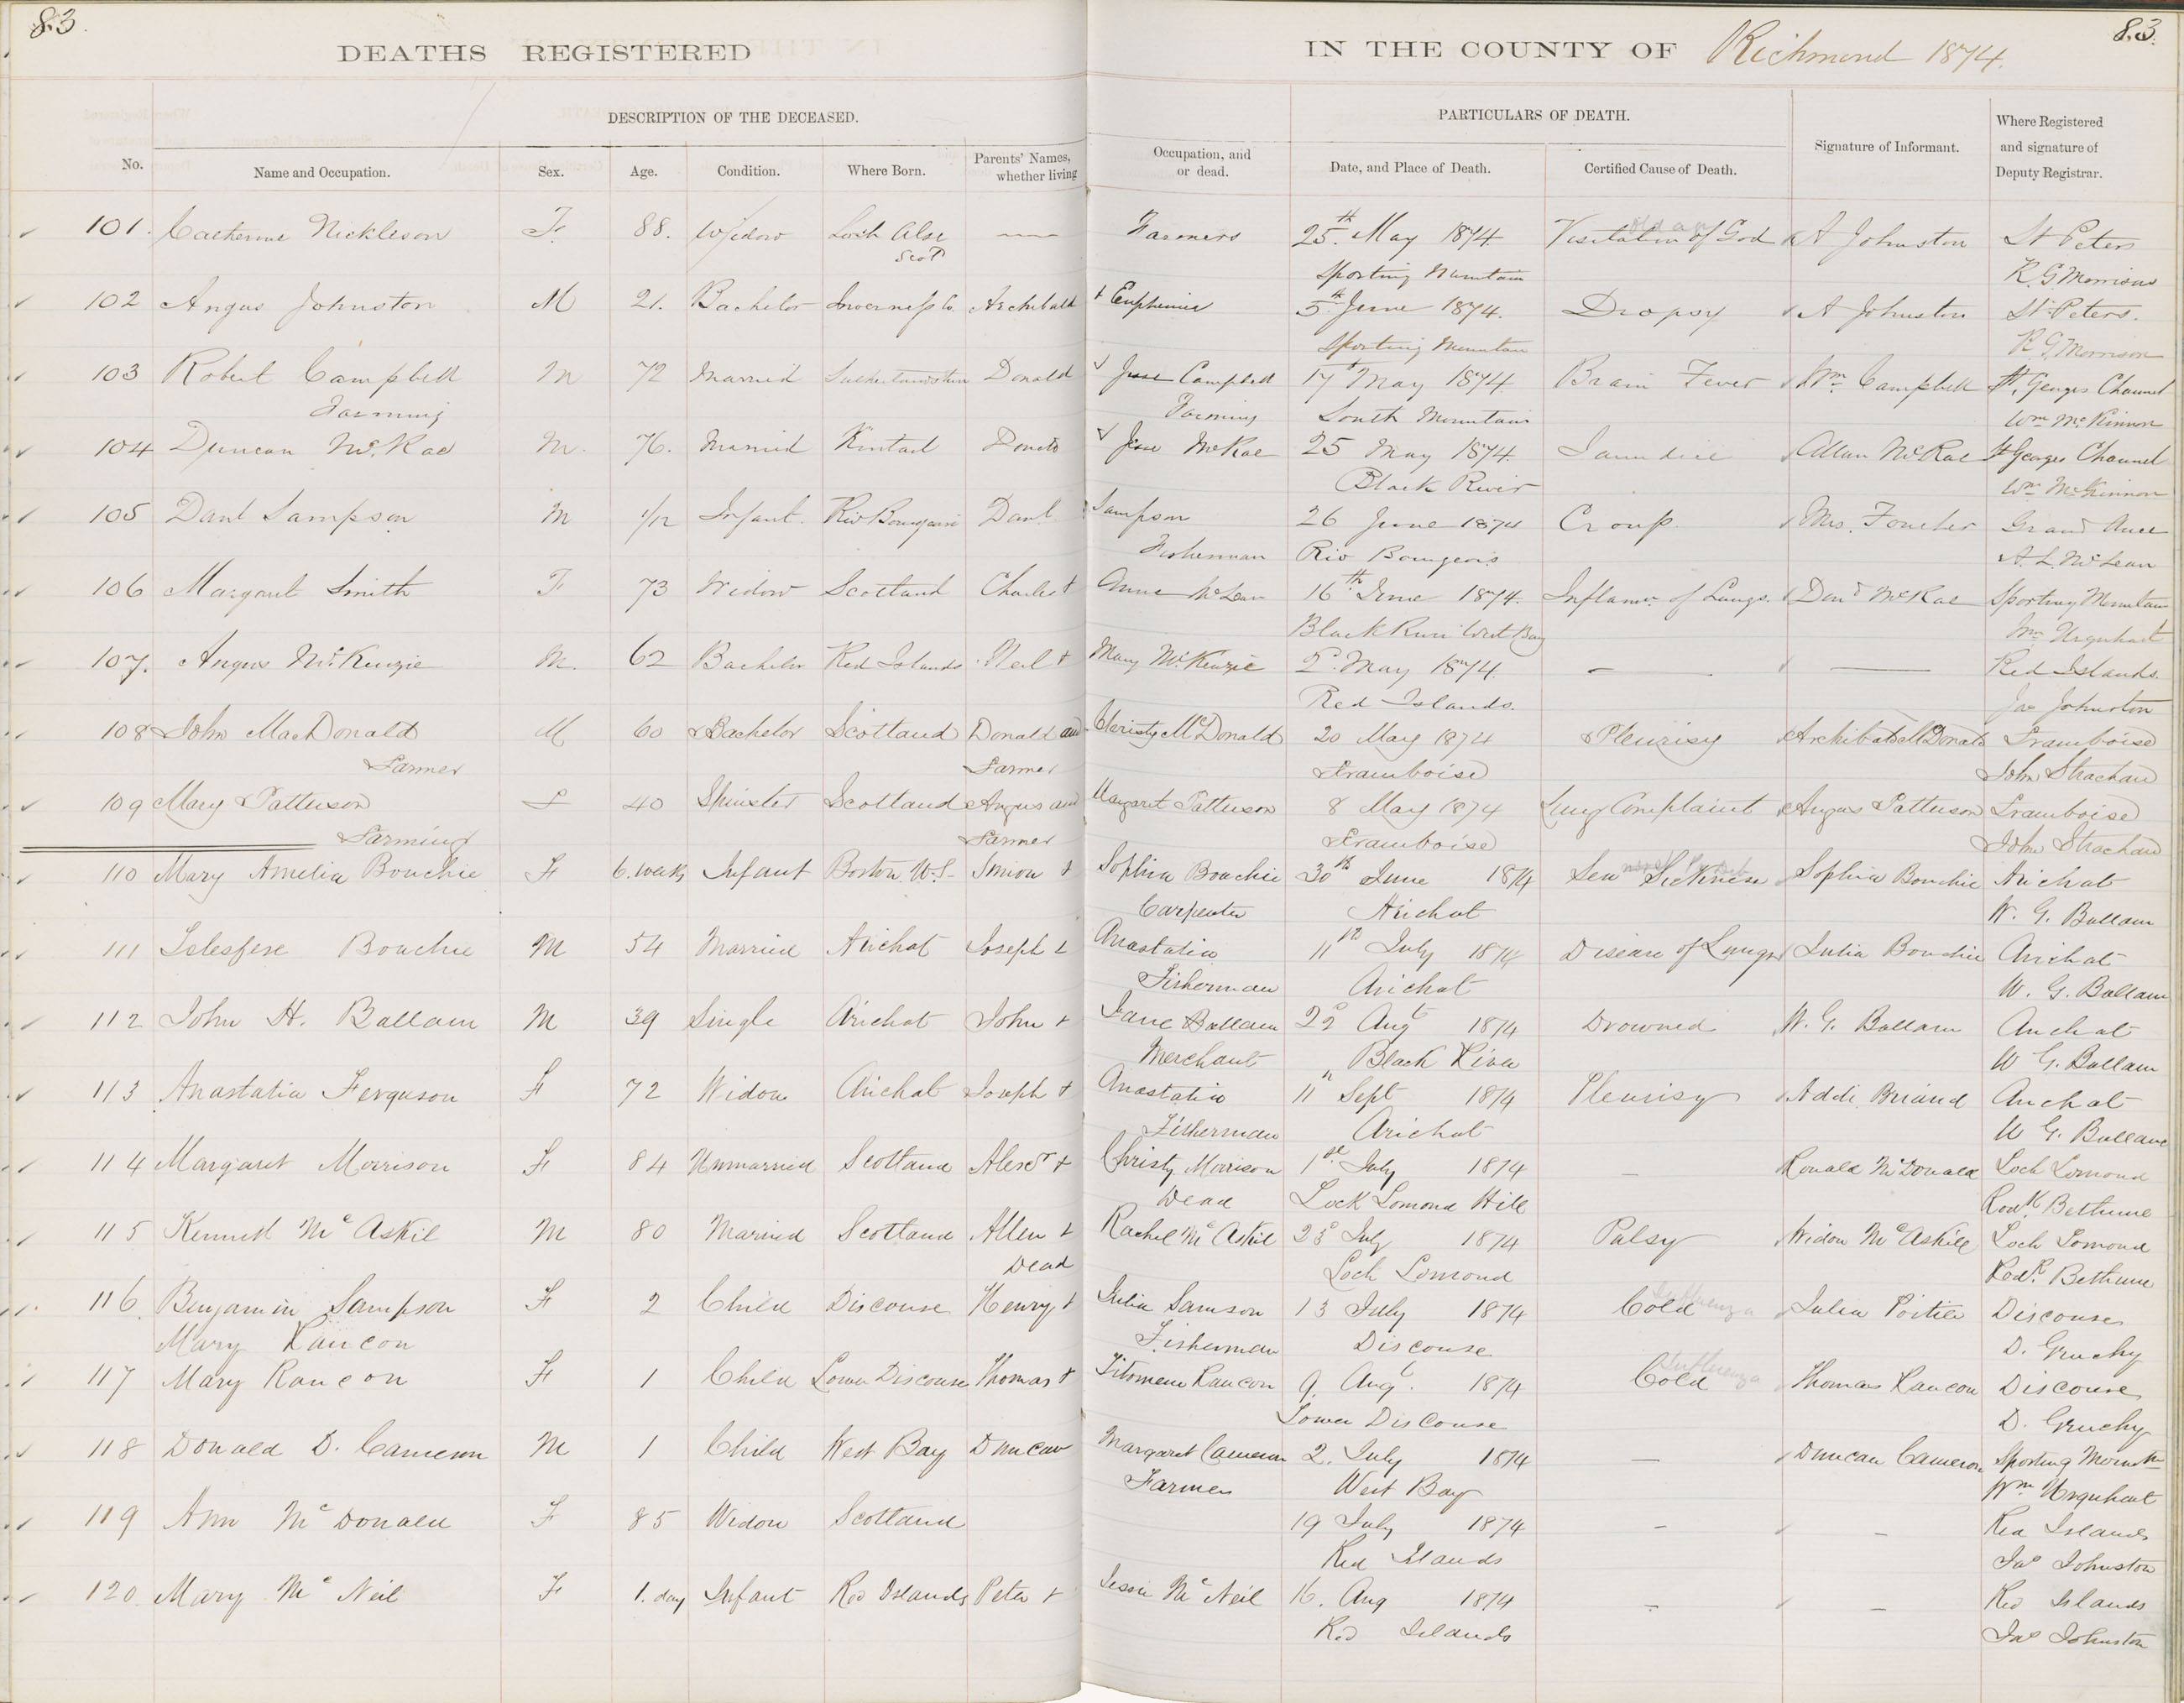 83.
83.
DEATHS REGISTERED IN THE COUNTY OF Richmond 1874.
DESCRIPTION OF THE DECEASED. PARTICULARS OF DEATH.
No. Name and Occupation. Sex. Age. Condition. Where Born. Parents' Names, whether living Occupation, and or dead. Date, and Place of Death. Certified Cause of Death. Signature of Informant. Where Registered and signature of Deputy Registrar.
101. Catherine Nickleson F. 88. Widow Loch Alse Farmers 25th May 1874 Visitation of God A Johnston St Peters
Scot Sporting Mountain R. G. Morrison
102 Angus Johnston M 21. Bachelor Inverness Co. Archibald + Euphemia 5th June 1874. Dropsy A Johnston St Peters.
Sporting Mountain R. G. Morrison
103 Robert Campbell M 72 Married Donald Campbell 17 May 1874. Brain Fever Wm Campbell St. Georges Channel
Farming Farming South Mountain Wm McKinnon
104 Duncan McRae M. 76. Married Kintail McRae 25 May 1874. Jaundice Allan McRae St Georges Channel
Black River Wm McKinnon
105 Danl Sampson M 1/12 Infant. Riv Bourgeois Danl Sampson 26 June 1874 Croup. Mrs. Foucher Grand Ance
Fisherman Riv Bourgeois A. L. McLean
106 Margaret Smith F 73 Widow Scotland Charles + Anne McLean 16th June 1874. Inflamn. of Lungs. Dond McRae Sporting Mountain
Black River West Bay Wm Urquhart
107. Angus McKenzie M. 62 Bachelor Red Islands Neil + Mary McKenzie 2d May 1874. — — Red Islands.
Red Islands. Jas Johnston
108 John MacDonald M 60 Bachelor Scotland Donald and Christy McDonald 20 May 1874 Pleurisy Archibald McDonald Framboise
Farmer Farmer Framboise John Strachan
109 Mary Patterson F 40 Spinster Scotland Angus and Margaret Patterson 8 May 1874 Lung Complaint Angus Patterson Framboise
Farming Farmer Framboise John Strachan
110 Mary Amelia Bouchie F 6. weeks Infant Boston U.S. Simion + Sophia Bouchie 30th June 1874 Sea Sickness Sophia Bouchie Arichat
Carpenter Arichat W. G. Ballam
111 Telesfere Bouchie M 54 Married Arichat Joseph + Anastatia 11th July 1874 Disease of Lungs Julia Bouchie Arichat
Fisherman Arichat W. G. Ballam
112 John H. Ballam M 39 Single Arichat John + Jane Ballam 22d Augt 1874 Drowned W. G. Ballam Arichat
Merchant Black River W G. Ballam
113 Anastatia Ferguson F 72 Widow Arichat Joseph + Anastatia 11th Sept 1874 Pleurisy Addi Briand Arichat
Fisherman Arichat W G. Ballam
114 Margaret Morrison F 84 Unmarried Scotland Alexr + Christy Morrison 1st July 1874 — Ronald McDonald Loch Lomond
Dead Lock Lomond Hill Rodk Bethune
115 Kenneth McAskil M 80 Married Scotland Allen + Rachel McAskil 23d July 1874 Palsy Widow McAskill Loch Lomond
Dead Loch Lomond Rodk Bethune
116 Benjamin Sampson F 2 Child Discouse Henry + Julia Samson 13 July 1874 Cold Influenza Julia Poitier Discouse
Mary Rancon Fisherman Discouse D. Gruchy
117 Mary Rancon F 1 Child Lower Discouse Thomas + Filomene Rancon 9. Augt. 1874 Cold Influenza Thomas Rancon Discouse
Lower Discouse D. Gruchy
118 Donald D. Cameron M 1 Child West Bay Duncan Margaret Cameron 2. July 1874 — Duncan Cameron Sporting Mountn
Farmer West Bay Wm Urquhart
119 Ann McDonald F 85 Widow Scotland 19 July 1874 — — Red Islands
Red Islands Jas Johnston
120 Mary McNeil F 1. day Infant Red Islands Peter + Jessie McNeil 16. Aug 1874 — — Red Islands
Red Islands Jas Johnston